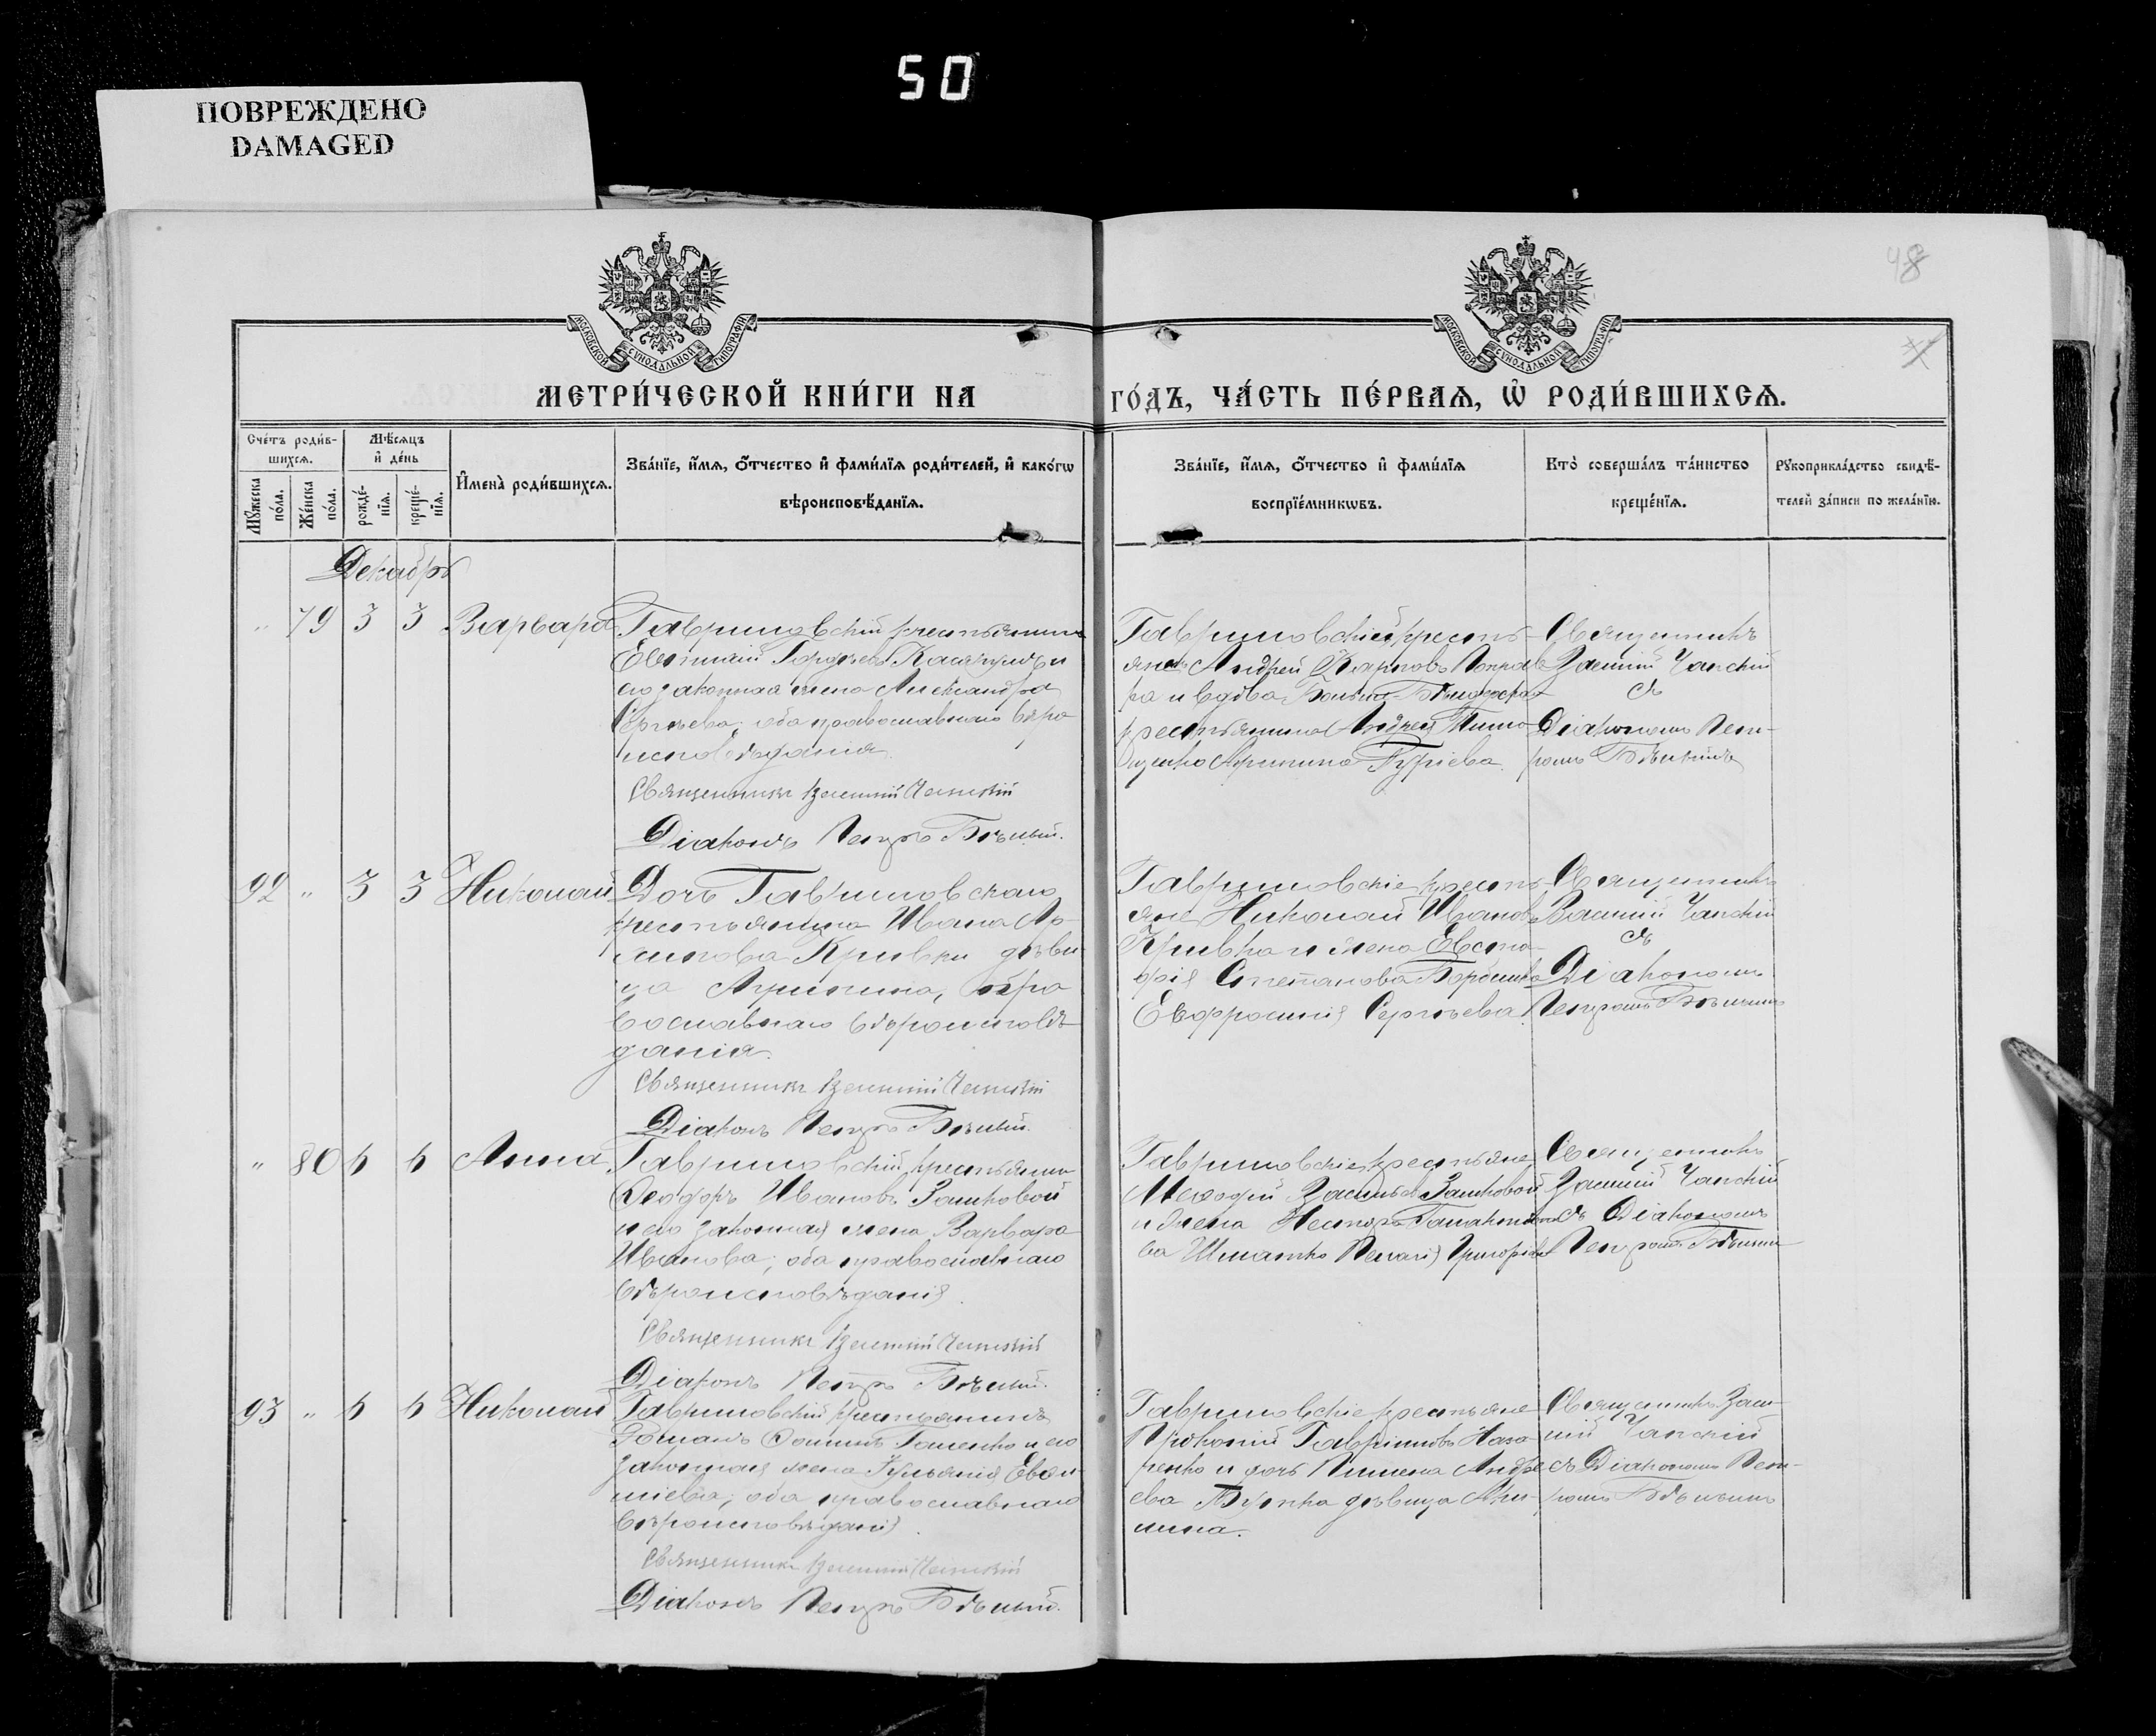 50
ПОВРЕЖДЕНО
DAMAGED
48
МОСКОВСКОЙ СѴНОДАЛЬНОЙ ТИПОГРАФІИ
МОСКОВСКОЙ СѴНОДАЛЬНОЙ ТИПОГРАФІИ
МЕТРИ́ЧЕСКОЙ КНИ́ГИ НА
ГО́ДЪ, ЧА́СТЬ ПЕ́РВАѦ, Ѡ҆ РОДИ́ВШИХСѦ.
Сче́тъ роди́в-
шихсѧ.
Мѣ́сѧцъ
и҆ де́нь
Мꙋ́жеска
по́ла.
Же́нска
по́ла.
рожде́-
нїѧ.
креще́-
нїѧ.
И҆мена̀ роди́вшихсѧ.
Зва́нїе, и҆́мѧ, ѻ҆́тчество и҆ фами́лїѧ роди́телей, и҆ како́гѡ
вѣроисповѣ́данїѧ.
Зва́нїе, и҆́мѧ, ѻ҆́тчество и҆ фами́лїѧ
воспрїе́мникѡвъ.
Кто̀ соверша́лъ та́инство
креще́нїѧ.
Рꙋкоприкла́дство свидѣ́-
телей за́писи по жела́нїю.
Декабрь
" 79 3 3 Варвара
Гавриловскій крестьянинъ
Евѳимій Гордѣевъ и
его законная жена Александра
Сергѣева, оба православнаго вѣро
исповѣданія.
Священникъ Василій Чапскій
Діаконъ Петръ Бѣлый.
Гавриловскій кресть-
янинъ Андрей Карповъ
ра и вдова
крестьянина Андрея Тимо-
щенко Агрипина Гуріева.
Священникъ
Василій Чапскій
съ
Діакономъ Пет-
ромъ Бѣлымъ
92 " 3 3 Николай
Дочь Гавриловскаго
крестьянина Ивана Ар-
хипова Кривки дѣви-
ца Агрипина, пра
вославнаго вѣроисповѣ-
данія.
Священникъ Василій Чапскій
Діаконъ Петръ Бѣлый.
Гавриловскіе кресть-
яне Николай Ивановъ
Кривка и жена Евста-
фія Степанова
Евфросинія Сергѣева.
Священникъ
Василій Чапскій
съ
Діакономъ
Петромъ Бѣлымъ
" 80 6 6 Анна
Гавриловскій крестьянинъ
Ѳеодоръ Ивановъ Зашковой
и его законная жена Варвара
Иванова, оба православнаго
вѣроисповѣданія.
Священникъ Василій Чапскій
Діаконъ Петръ Бѣлый.
Гавриловскіе крестьяне
Меѳодій Васильевъ Зашковой
и жена Нестора
ва Шматко Пелагія Григоріева
Священникъ
Василій Чапскій
съ Діакономъ
Петромъ Бѣлымъ
93 " 6 6 Николай
Гавриловскій крестьянинъ
Романъ Ѳоминъ и его
законная жена Іуліанія Евѳи-
міева, оба православнаго
вѣроисповѣданія.
Священникъ Василій Чапскій
Діаконъ Петръ Бѣлый.
Гавриловскіе крестьяне
Прокопій Гавріиловъ Наза-
ренко и дочь Пимена Андре-
ева дѣвица Аки-
лина.
Священникъ Васи-
лій Чапскій
съ Діакономъ Пет-
ромъ Бѣлымъ